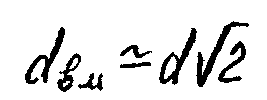 dвм ≃ d√2